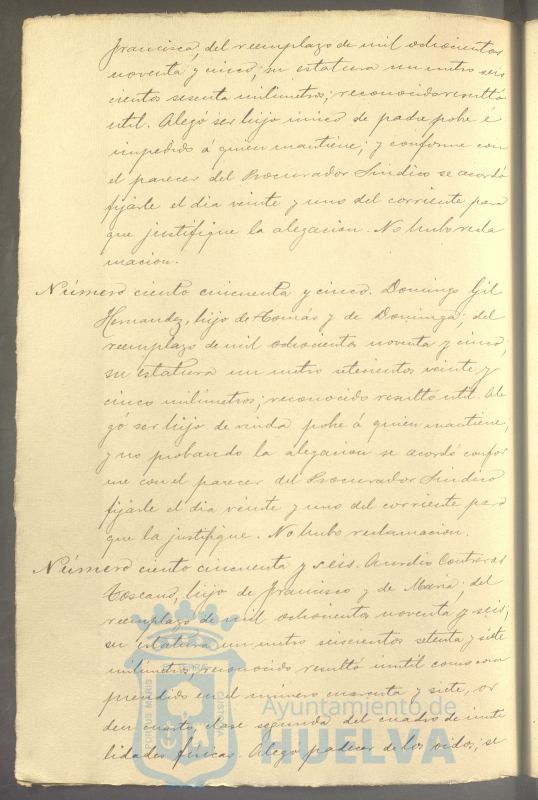 Francisca, del reemplazo de mil ochocientos
noventa y cinco; su estatura un metro seis
cientos sesenta milímetros; reconocido resultó
util. Alegó ser hijo único de padre pobre é
impedido á quien mantiene; y conforme con
el parecer del Procurador Síndico se acordó
fijarle el dia veinte y uno del corriente para
que justifique la alegacion. No hubo recla
macion.
Número ciento cincuenta y cinco. Domingo Gil
Hernandez, hijo de Tomás y de Dominga; del
reemplazo de mil ochocientos noventa y cinco;
su estatura un metro setecientos veinte y
cinco milímetros; reconocido resultó util. Ale
gó ser hijo de viuda pobre á quien mantiene,
y no probando la alegacion se acordó confor
me con el parecer del Procurador Síndico
fijarle el dia veinte y uno del corriente para
que la justifique. No hubo reclamacion.
Número ciento cincuenta y seis. Aurelio Contreras
Toscano, hijo de Francisco y de Maria; del
reemplazo de mil ochocientos noventa y seis;
su estatura un metro seiscientos setenta y siete
milímetros; reconocido resultó inutil como com
prendido en el número cuarenta y siete, or
den cuarto, clase segunda del cuadro de inuti
lidades físicas. Alegó padecer de los oidos; se
PORTUS MARIS ET TERRAE CUSTODIA
Ayuntamiento de
HUELVA